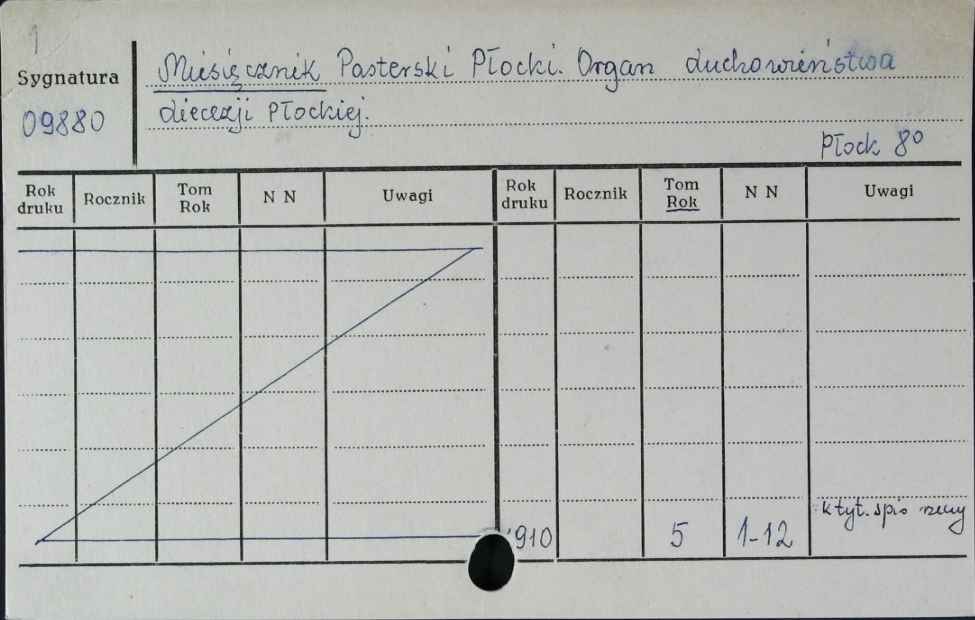 1
Miesięcznik Pasterski Płocki. Organ duchowieństwa
Sygnatura
09880
diecezji Płockiej.
Płock 8º
Rok druku Rocznik Tom Rok N N Uwagi Rok druku Rocznik Tom Rok N N Uwagi
k tyt. spis rzeczy
1910 5 1-12